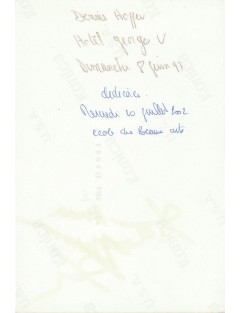 Dennis Hopper
Hotel george V
Dimanche 8 juin 97
dédicace
Mercredi 10 juillet 2002
ecole des Beaux arts